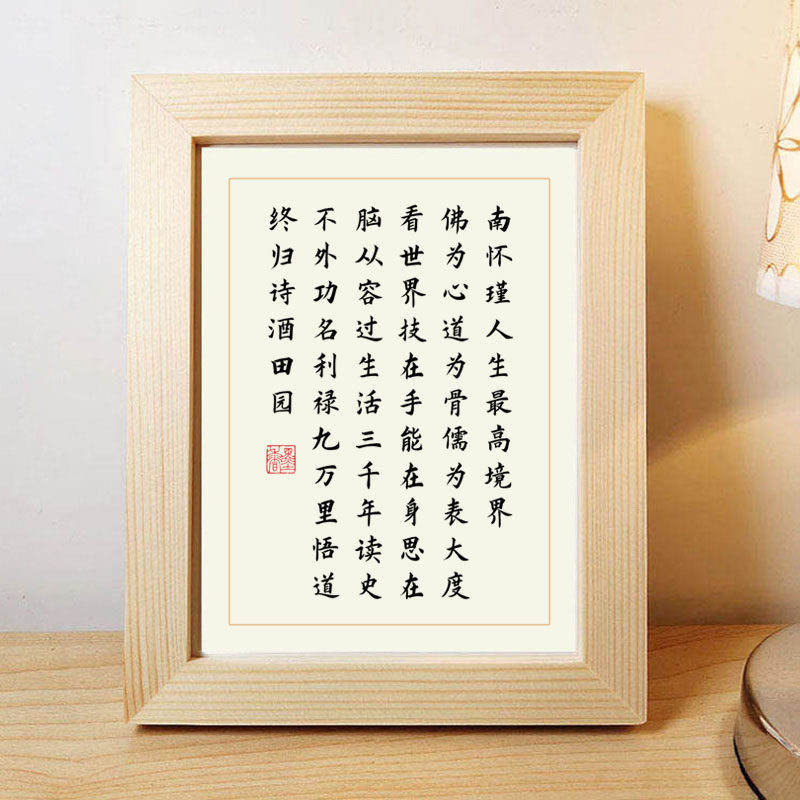 南怀瑾人生最高境界
佛为心道为骨儒为表大度
看世界技在手能在身思在
脑从容过生活三千年读史
不外功名利禄九万里悟道
终归诗酒田园
墨香